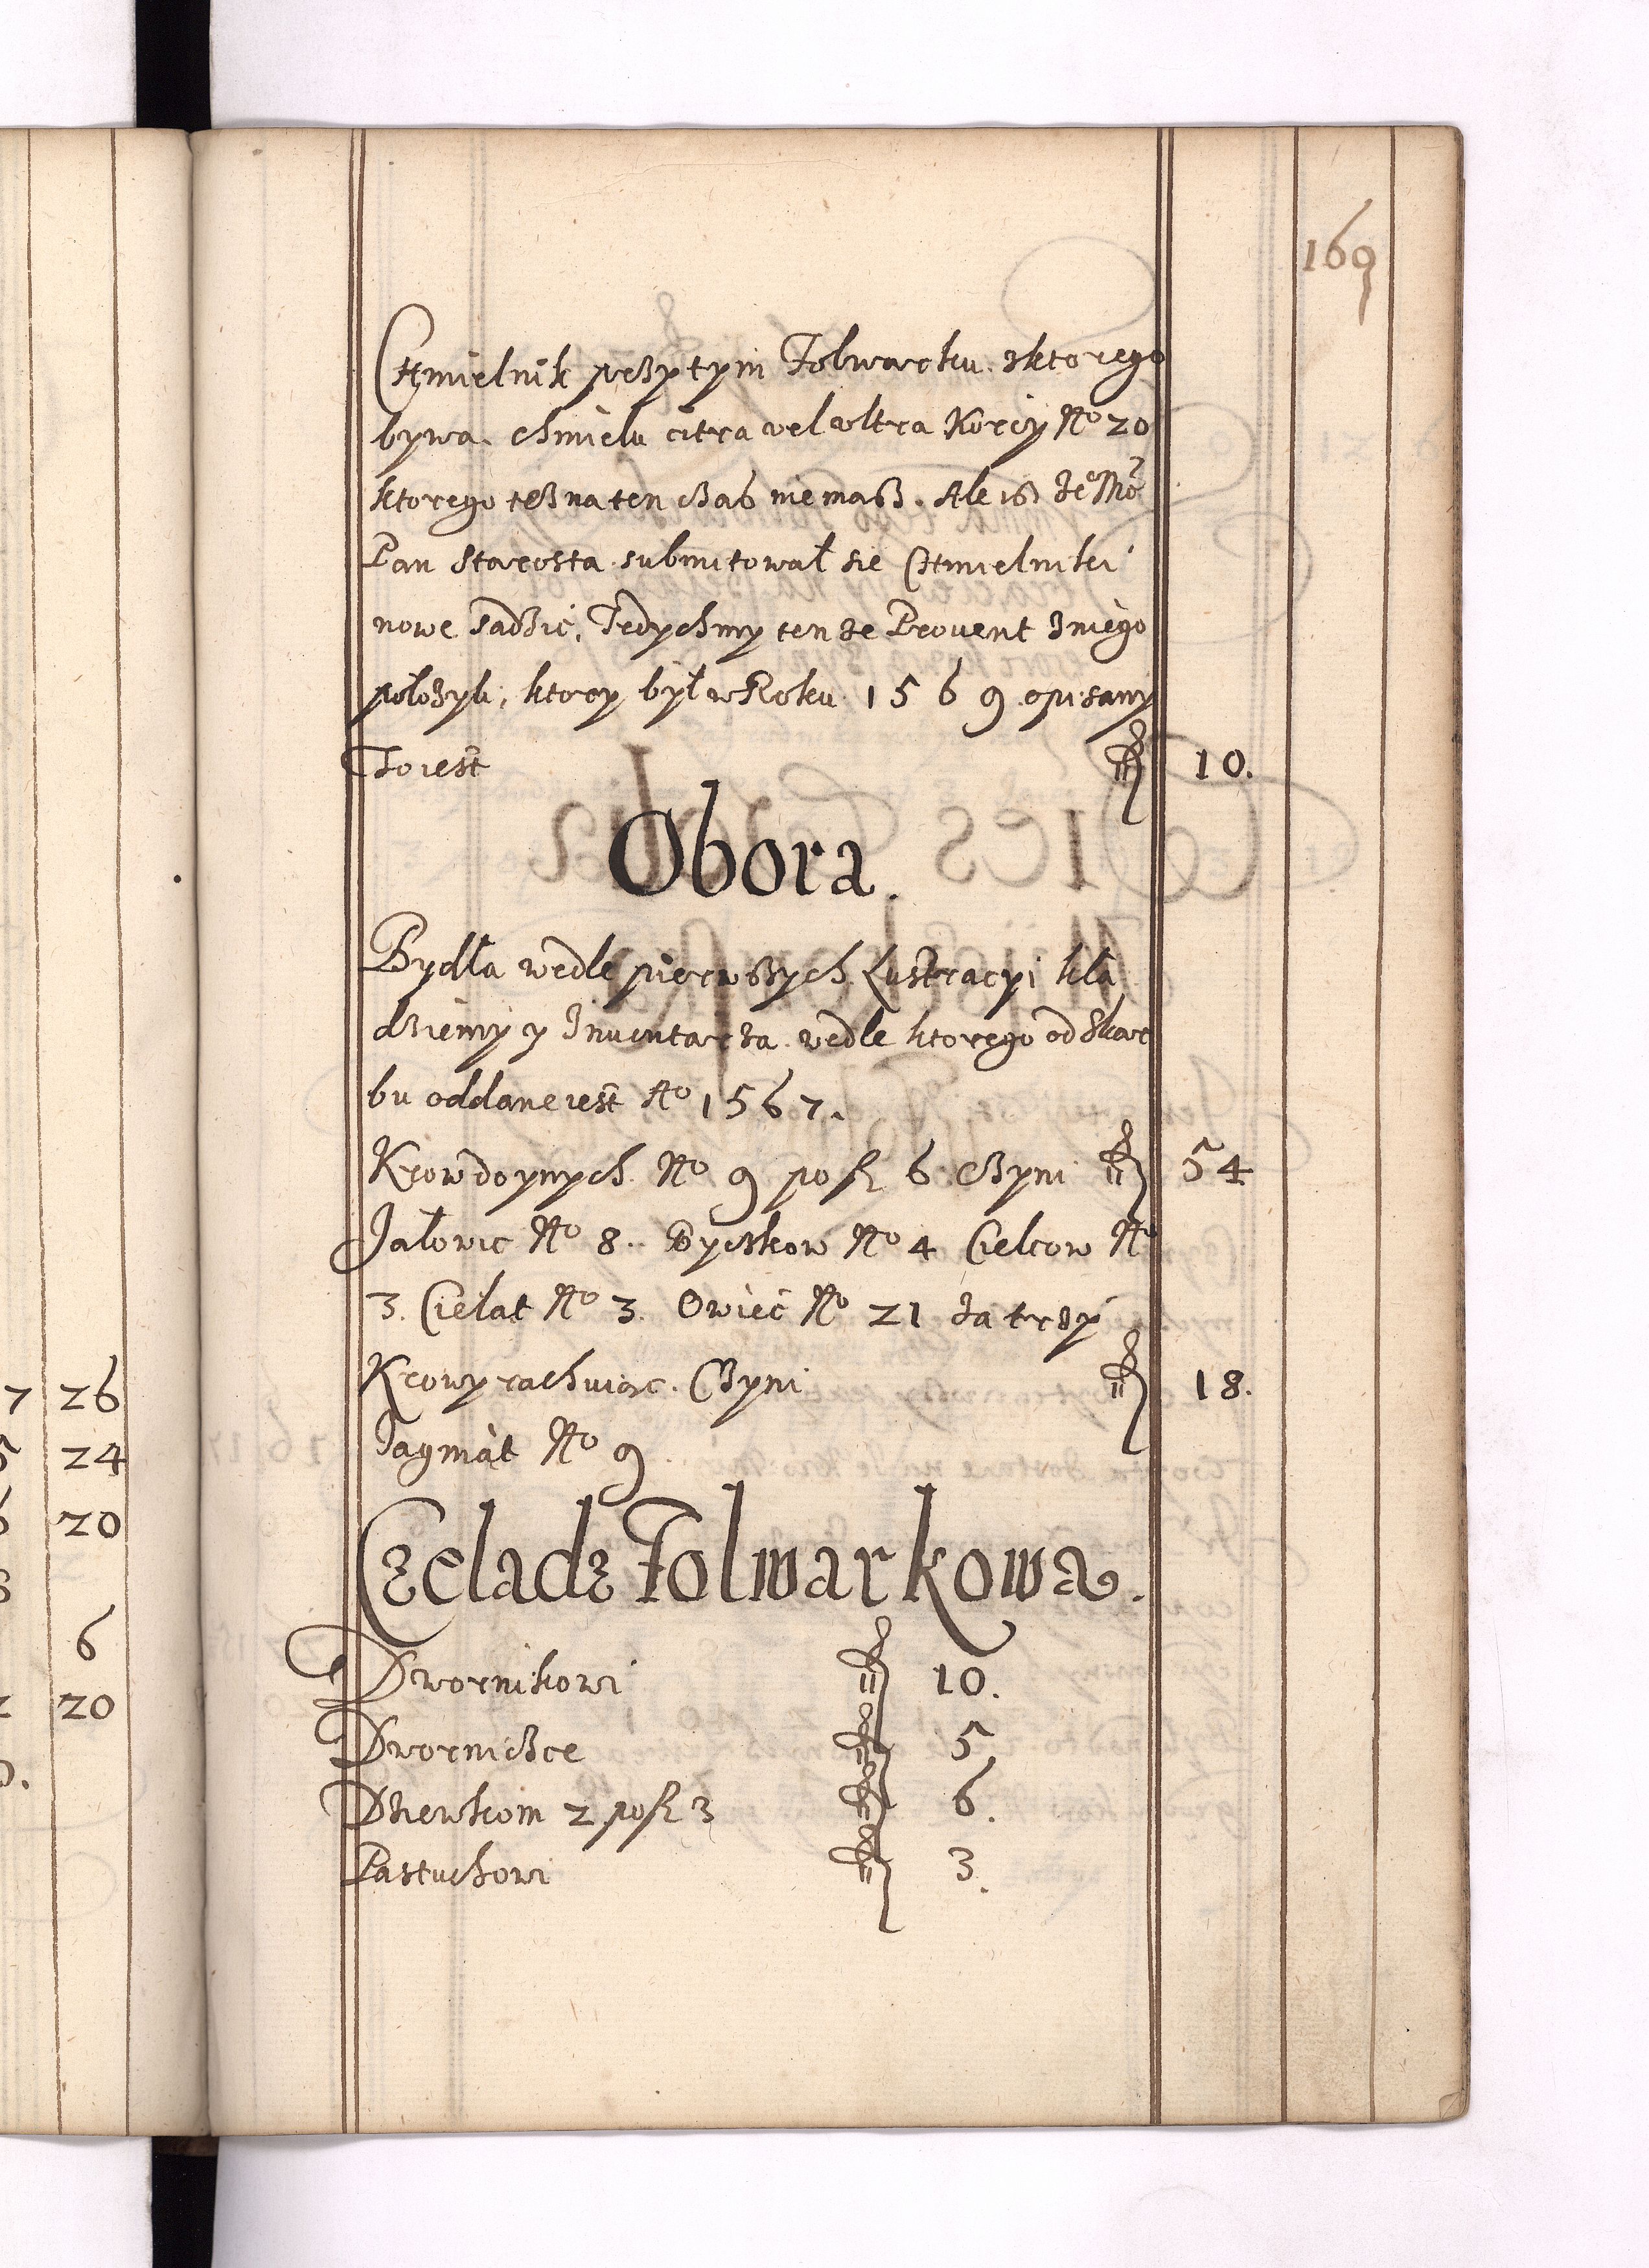 169
Chmielnik przÿ tÿm Folwarku. z ktorego
bywa. chmielu citra vel vltra Korcÿ No 20
ktorego tesz na ten czas nie masz. Ale isz Je° Mć
Pan Starosta submitował sie Chmielniki
nowe sadzić, Tedychmÿ ten że Prouent z niego
położyli, ktorÿ był w Roku 1569 opisanÿ
To iest fl 10.
Obora.
Bydła wedle pierwszych Lustracyi kła
dziemÿ ÿ Inuentarza. wedle ktorego od Skar
bu oddane iest Ao 1567.
Krow doynych No 9 po fl 6 Czÿni fl 54
Jałowic No 8. Byczkow No 4 Cielcow No
3. Cielat No 3. Owiec No 21 za trzÿ
Krowÿ rachuiąc. Czÿni fl 18.
Jagniąt No 9
Czeladz Folwarkowa.
Dwornikowi fl 10.
Dworniczce fl 5.
Dziewkom 2 po fl 3 fl 6.
Pastuchowi fl 3.
7 26
5 24
6 20
6
20